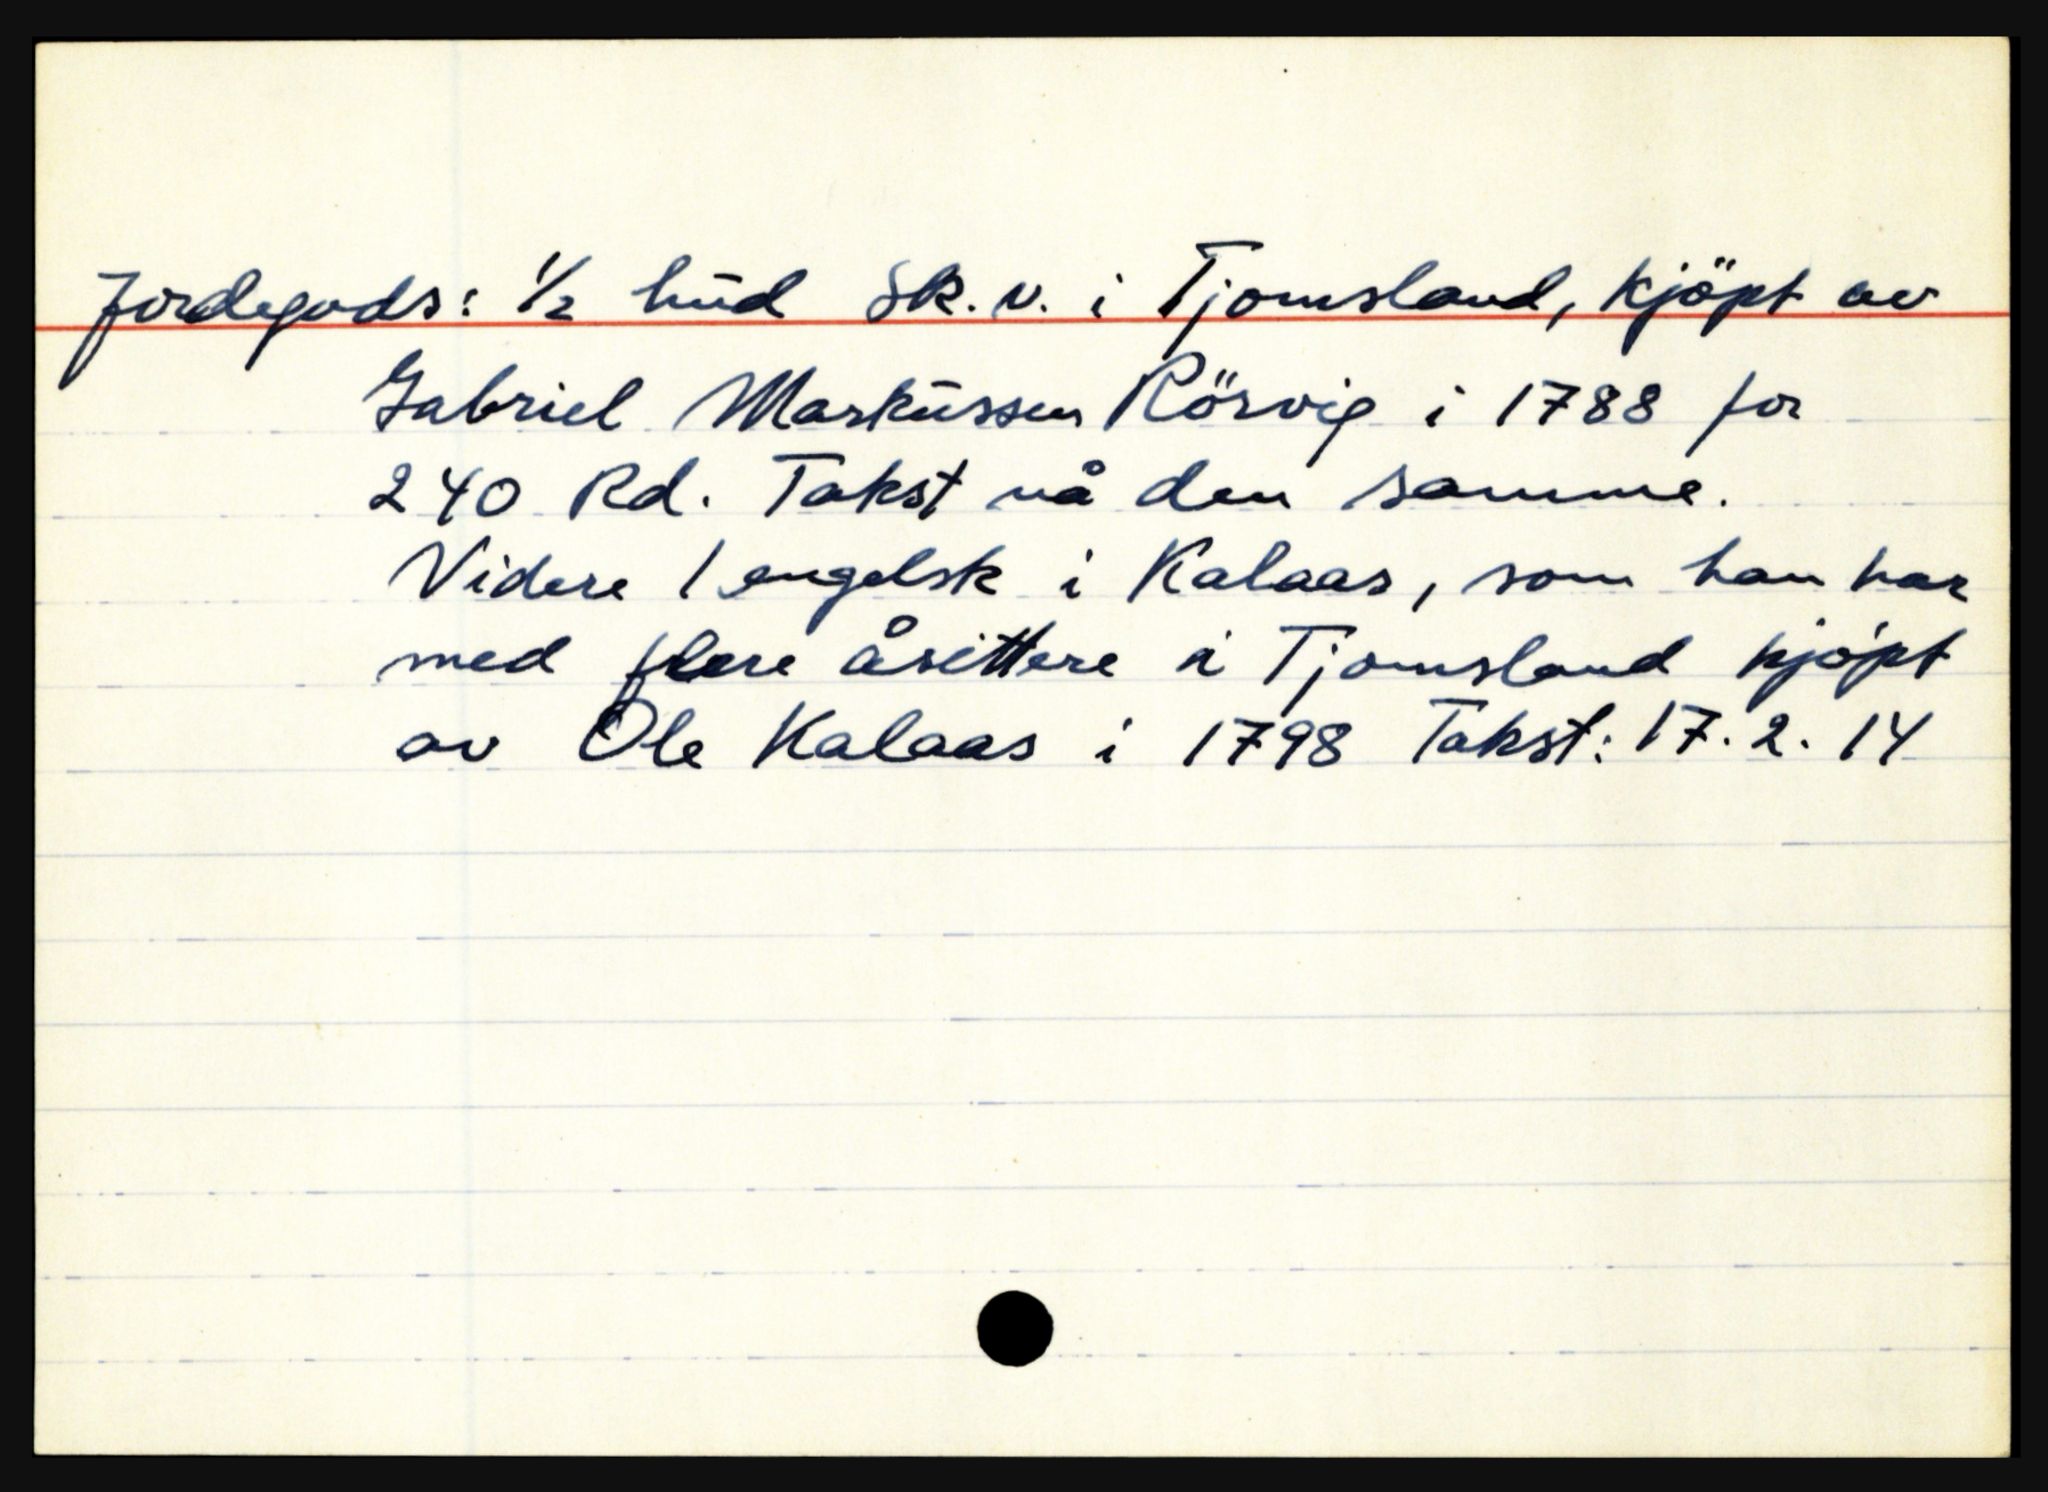 Jordegods: 1/2 hud sk. v. i Tjomsland, kjöpt av
Gabriel Markussen Rörvig i 1788 for
240 Rd. Takst nå den samme.
Videre 1 engelsk i Kalaas, som han har
med flere åsittere i Tjomsland kjöpt
av Ole Kalaas i 1798 Takst: 17. 2. 14